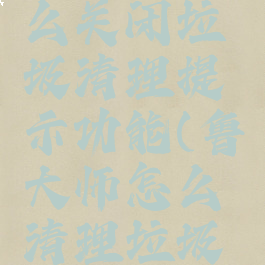 么关闭垃
圾清理提
示功能(鲁
大师怎么
清理垃圾